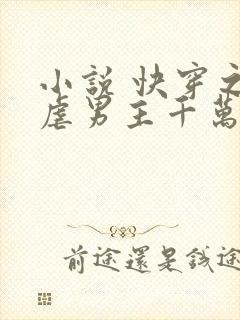 小說 快穿之
虐男主千萬
前途還是錢途